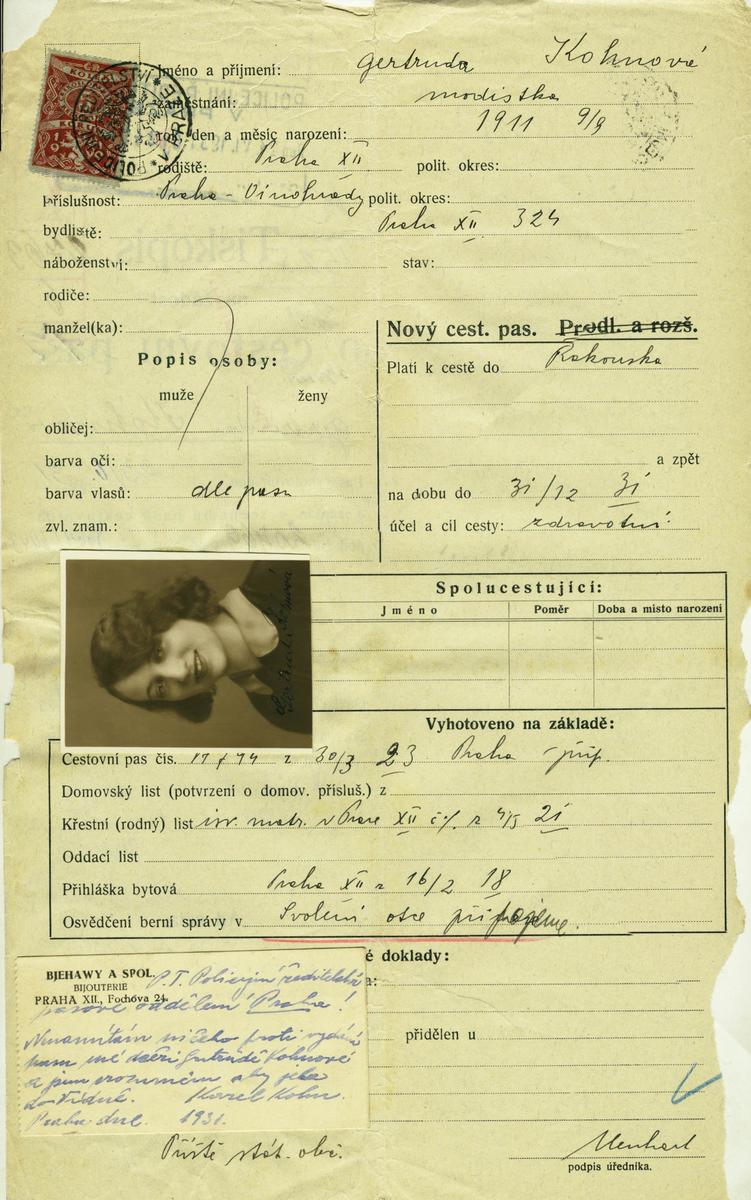 POLICEJNÍ ŘEDITELSTVÍ V PRAZE
Jméno a příjmení: Gertruda Kohnová
zaměstnání: modistka
rok, den a měsíc narození: 1911 9/9
rodiště: Praha XII polit. okres:
příslušnost: Praha - Vinohrady polit. okres:
bydliště: Praha XII. 324
náboženství: stav:
rodiče:
manžel(ka):
Popis osoby:
muže ženy
obličej:
barva očí:
barva vlasů: dle pasu
zvl. znam.:
Nový cest. pas. Prodl. a rozš.
Platí k cestě do Rakouska
a zpět
na dobu do 31/12 31
účel a cíl cesty: zdravotní
Spolucestující:
Jméno Poměr Doba a místo narození
Vyhotoveno na základě:
Cestovní pas čís. z 30/3 23 Praha příp.
Domovský list (potvrzení o domov. přísluš.) z
Křestní (rodný) list isr. matr. v Praze XII č./. z 4/5 21
Oddací list
Přihláška bytová Praha XII z 16/2 18
Osvědčení berní správy v Svolení otce připojeno.
é doklady:
a:
přidělen u
BJEHAWY A SPOL.
BIJOUTERIE
PRAHA XII., Fochova 24.
P. T. Policejní ředitelství
pasové oddělení Praha!
Nenamítám ničeho proti vydání
pasu mé dceři Gertrudě Kohnové
a jsem srozuměn aby jela
do Vídně. Karel Kohn.
Praha dne 1931.
Příště stát. obč.
podpis úředníka.